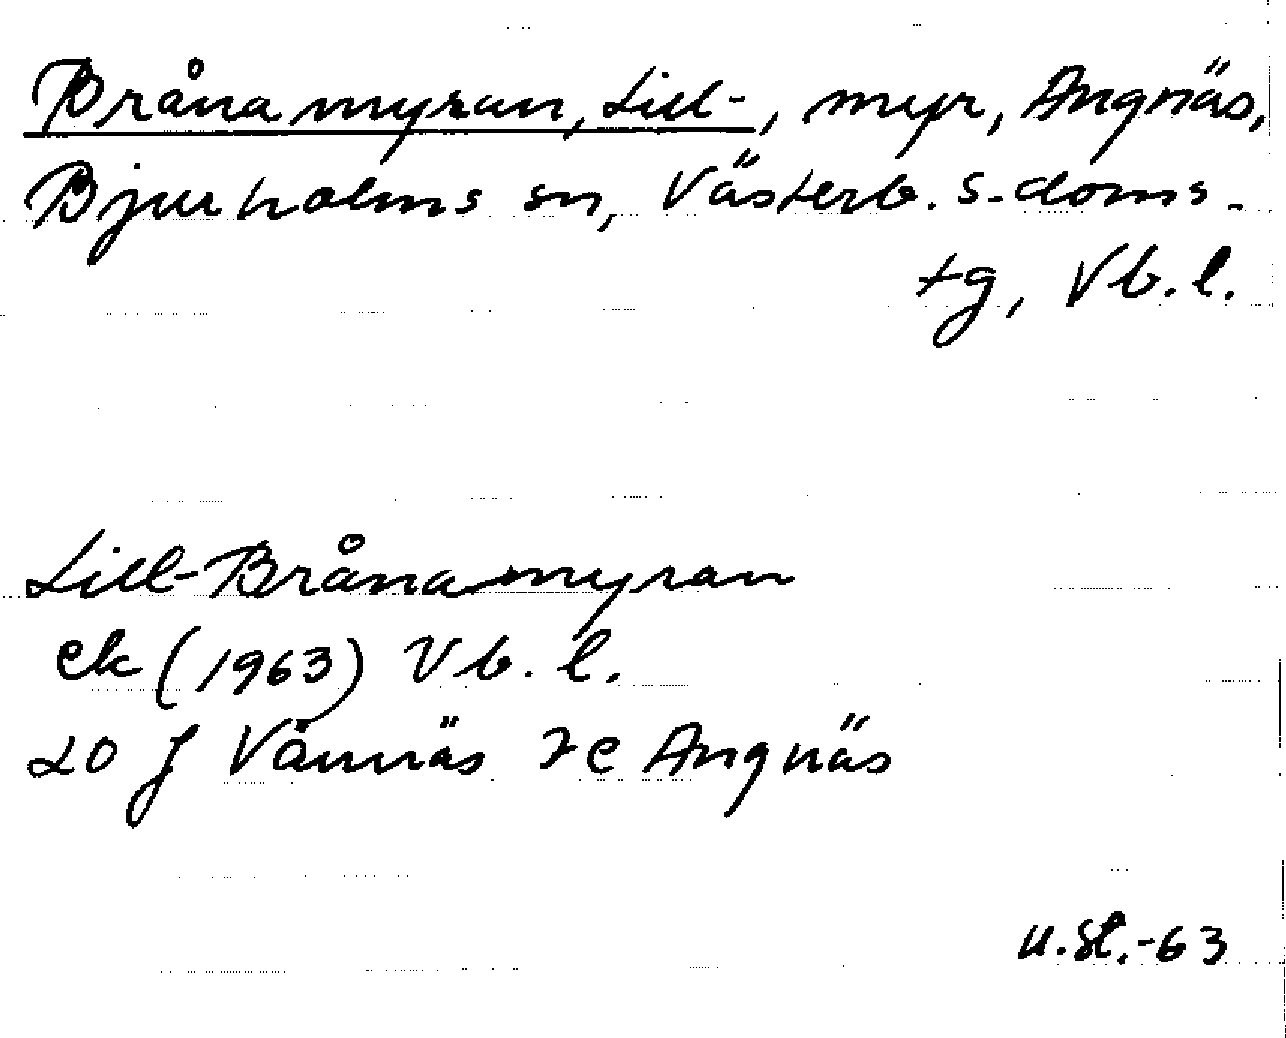 Brånamyran, Lill-, myr, Angnäs,
Bjurholms sn, Västerb. s. doms.
tg, Vb. l.
Lill-Brånamyran
ek (1963) Vb. l.
20 J Vännäs 7c Angnäs
U.St.-63